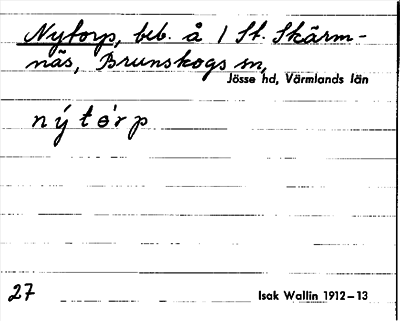 Nytorp, beb. å 1 St. Skärm-
näs, Brunskogs sn,
Jösse hd, Värmlands län
ný tòrp
27
Isak Wallin 1912–13